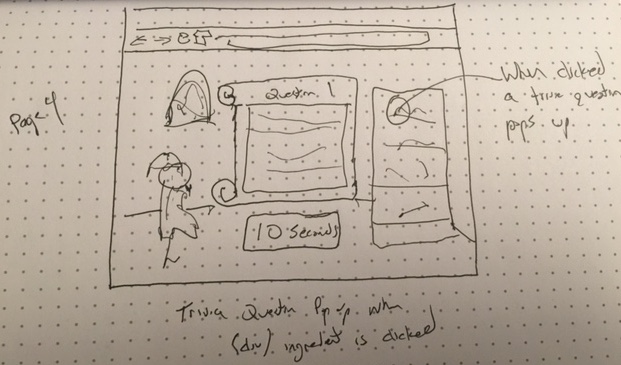 Page 4
Question 1
When clicked
a trivia question
pops up.
10 Seconds
Trivia Question Pop up when
(div) ingredient is clicked